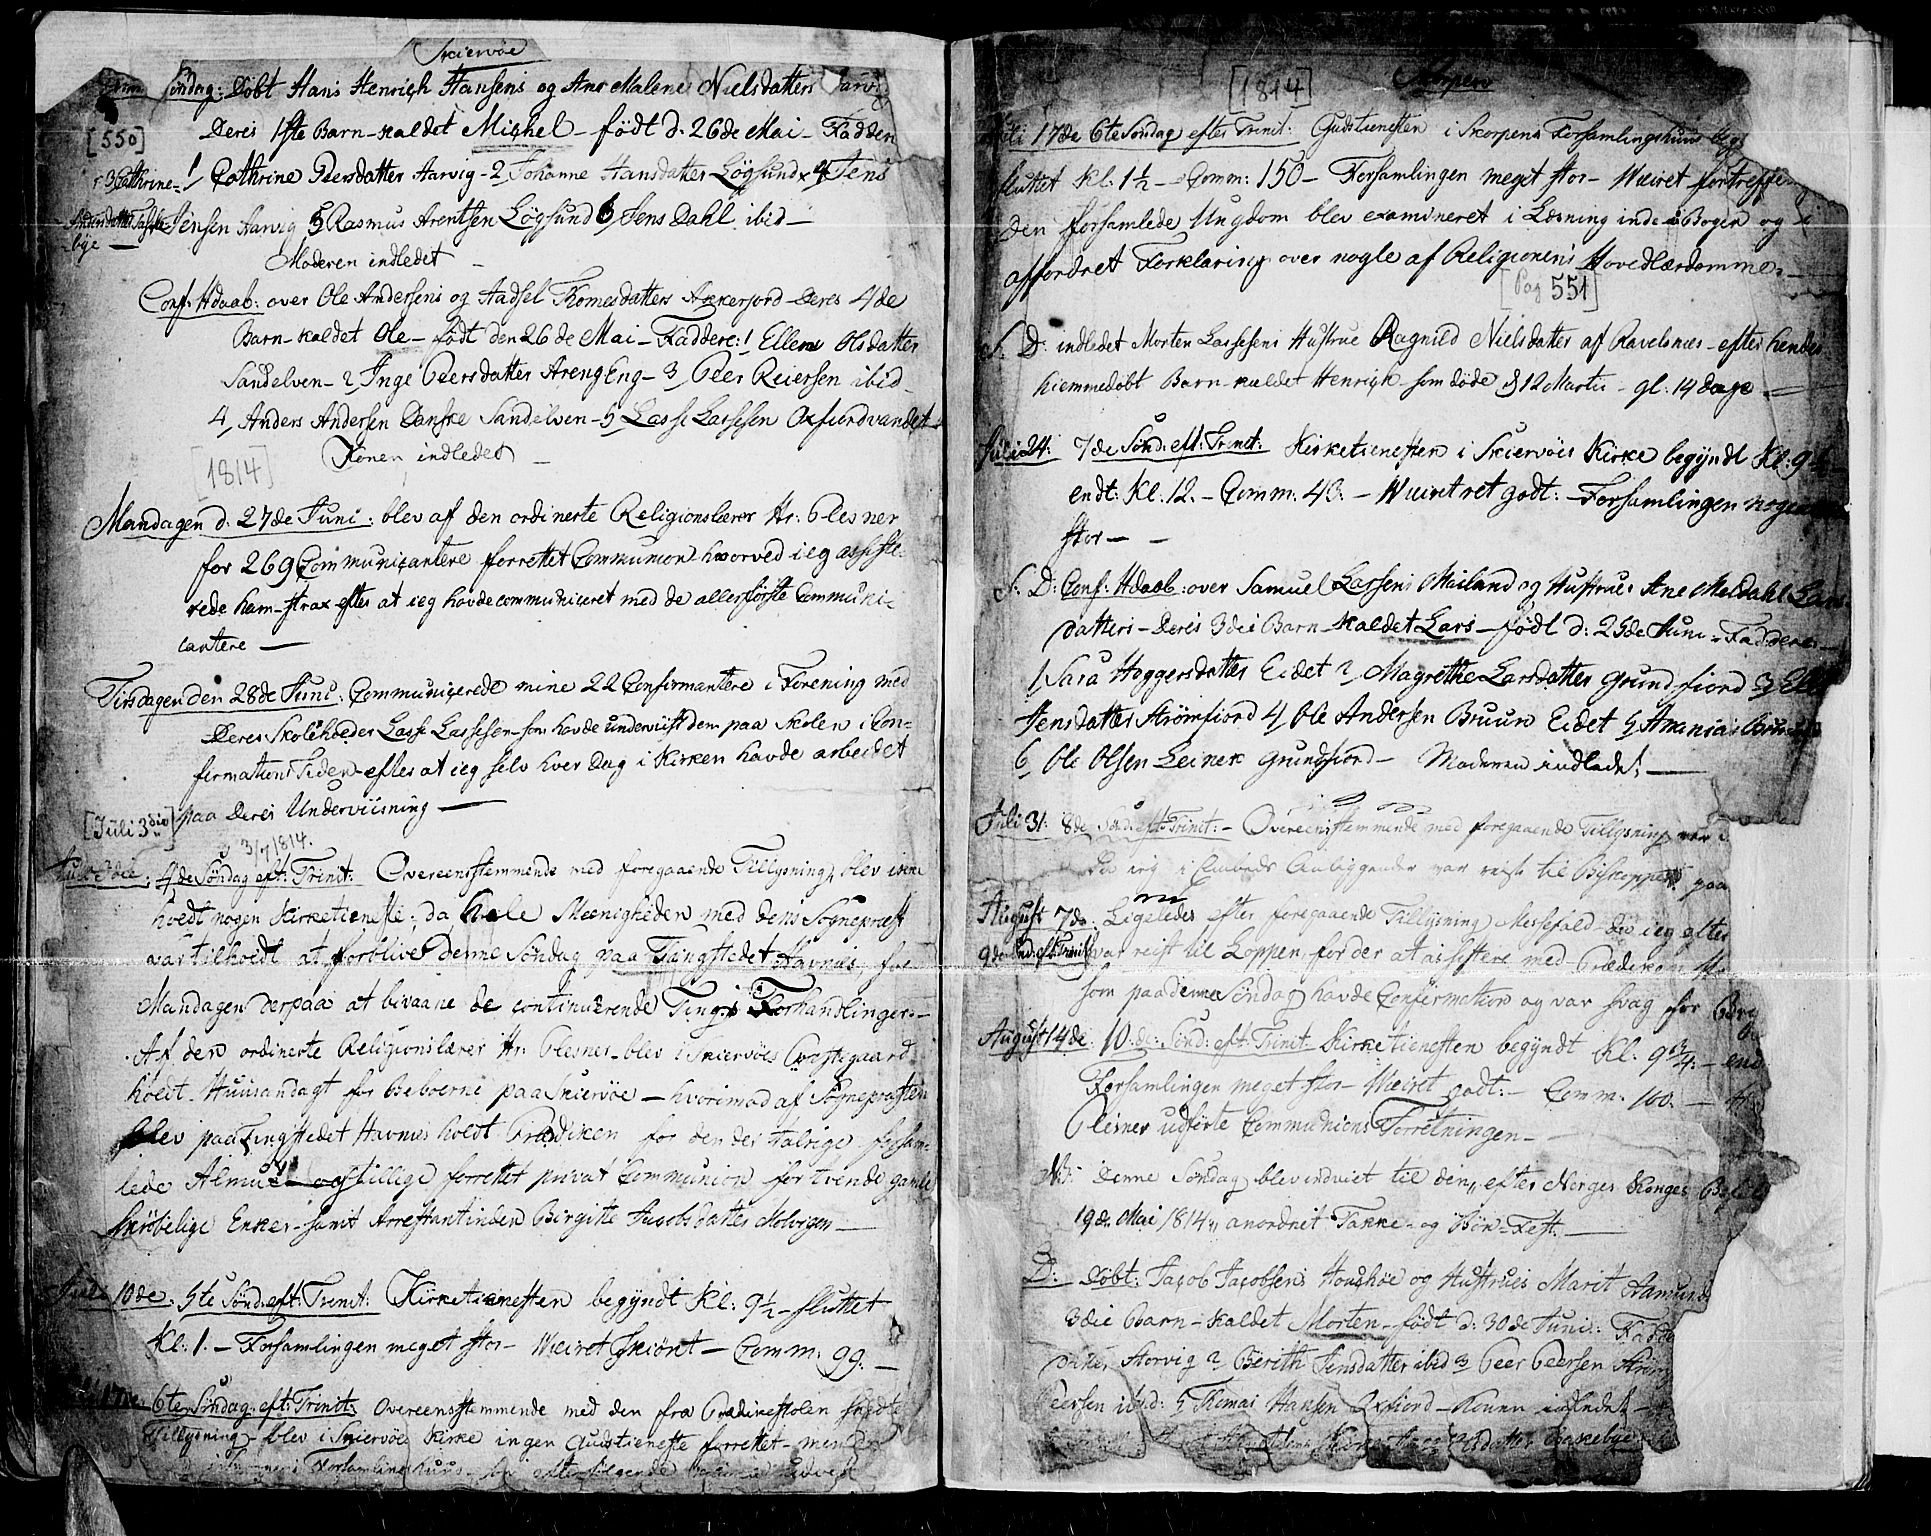 Skiervöe
Söndag: Döbt Hans Henrich Hansens og Ane Malene Nielsdatters
[550]
Deres 1ste Barn kaldet Michel - födt d. 26de Mai - Fadder
r 3 Cathrine
1/ Cathrine Peersdatter Aarvig - 2, Johanne Hansdatter Lögsund 4 Jens
bye
Jensen Aarvig 5 Rasmus Arentsen Lögsund 6 Jens Dahl ibid -
Moderen indledet -
Conf: Hdaab: over Ole Andersens og Aadsel Thomesdatters Akkerjord Deres 4de
Barn - kaldet Ole - födt den 26de Mai - Faddere: 1 Ellen Olsdatter
Sandelven - 2, Inge Peersdatter ArengEng - 3, Peer Reiersen ibid -
4, Anders Andersen Danske Sandelven - 5, Lasse Lassesen Oxfiordvandet
Konen indledet -
[1814]
Mandagen d. 27de Juni: blev af den ordinerte Religionslærer Hr: Plesner
for 269 Communicantere forrettet Communion hvorved ieg assiste-
rede ham - strax efter at ieg havde communiceret med de allerförste Communi-
cantere -
Tirsdagen den 28de Juni: Communicerede mine 22 Confirmantere i Forening med
Deres Skoleholder Lasse Lassesen - som havde underviist dem paa Skolen i Con-
firmations Tiden - efter at ieg selv hver Dag i Kirken havde arbeidet
paa Deres Underviisning -
[Juli 3die]
3/7 1814.
Juli 3die: 4de Söndag eft: Trinit: Overeensstemmende med foregaaende Tillysning, blev ikke
holdt nogen Kirketieneste; da hele Menigheden med dens Sognepræst
var tilholdt at forblive denne Söndag paa Tingstedet Havnæs, for
Mandagen derpaa at bivaane de continuerende Tings Forhandlinger -
Af den ordinerte Religionslærer Hr: Plesner - blev i Skiervöes Præstegaard
holdt Huusandagt for Beboerne paa Skiervöe - hvorimod af Sognepræsten
blev paa Tingstedet Havnæs holdt Prædiken for den der talrige forsam-
lede Almue - og tillige forrettet privat Communion for tvende gamle
skröbelige Enker - samt Arrestantinden Birgitte Jacobsdatter Molvigen -
Juli 10de: 5te Sönd: eft: Trinit: Kirketienesten begyndt Kl: 9½ - sluttet
Kl: 1. - Forsamlingen meget stor - Weiret skiönt - Comm: 99. -
17de: 6te Söndag eft: Trinit: Overeensstemmende med den fra Prædikestolen skeedte
Tillysning - blev i Skiervöe Kirke ingen Gudstieneste forrettet - men
Forsamlingshuus - efterfölgende
[1814]
Juli 17de 6te Söndag efter Trinit: Gudstienesten i Skorpens Forsamlingshuus beg:
sluttet Kl: 1½ - Comm: 150 - Forsamlingen meget stor - Weiret fortreffe
Den forsamlede Ungdom blev examineret i Læsning inden Bogen og
affordret Forklaring over nogle af Religionens Hovedlærdomme. -
[Pag 551]
S. D: indledet Morten Lassesens Hustrue Ragnild Nielsdatter af Ravelsnæs - efter hendes
hiemmedöbt Barn kaldet Henrich som döde d 12 Martii - gl. 14 dage -
Juli 24: 7de Sönd: eft: Trinit: Kirketienesten i Skiervöes Kirke begyndt Kl: 9½
endt: Kl: 12. - Comm: 43. - Weiret ret godt: - Forsamlingen nogenlunde
stor -
S. D: Conf: Hdaab: over Samuel Larsens Mailand og Hustrue Ane Meldahl Lars-
datters - Deres 3die Barn kaldet Lars - födt d: 25de Juni - Faddere -
1, Sara Hoggersdatter Eidet 2, Magrethe Larsdatter Grundfiord 3, Elle
Jensdatter Strömfiord 4, Ole Andersen Bruun Eidet 5 Ananias Bruun
6, Ole Olsen Leinek Grundfiord - Moderen indledet -
Juli 31: 8de Sönd: eft: Trinit: - Overeensstemmende med foregaaende Tillysning
Da ieg i Embeds Anliggender var reist til Biskoppen paa
August 7de: Ligeledes efter foregaaende Tillysning Messefald - da ieg efter
9de Sönd: eft: Trinit: var reist til Loppen for der at assistere med Prædiken
som paa denne Söndag havde Confirmation og var svag for Bryst
August 14de: 10de: Sönd: eft: Trinit: Kirketienesten begyndt Kl: 9¾ - end
Forsamlingen meget stor - Weiret godt: - Comm. 100. -
Plesner udförte Communions Forretningen -
NB: Denne Söndag blev indviet til den, efter Norges Konges Befal
19de Mai 1814, anordnet Takke - og Bön - Fest. -
D: Döbt: Jacob Jacobsens Houshöe og Hustrues Marit Aamunds
3die Barn - kaldet Morten - födt d: 30de Juni: Fadde
Storvig 2 Berith Jensdatter ibid 3 Peer Peersen Ström
Peersen ibid: 5 Thomas Hansen Oxfiord - Konen indledet -
Baskebye